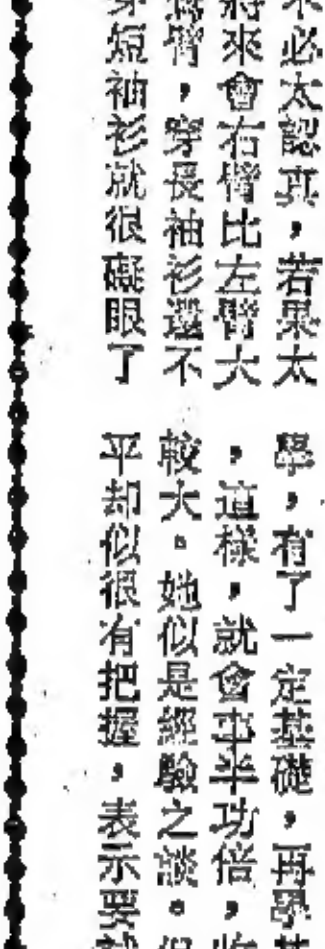 必太認真，若果太
將來會右臂比左臂大
臂，穿長袖衫還不
穿短袖衫就很礙眼了
學，有了一定基礎，再學
，這樣，就會事半功倍，
較大。她似是經驗之談。
平却似很有把握，表示要